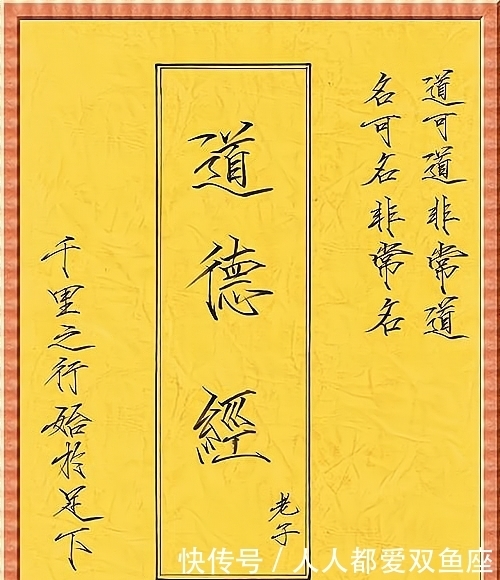 道可道非常道
名可名非常名
道德經
老子
千里之行始於足下
快传号／人人都爱双鱼座